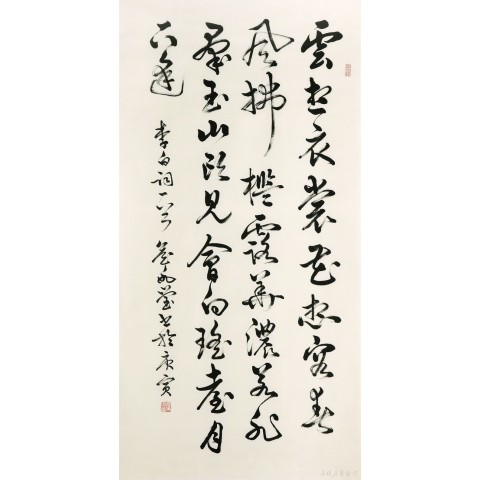 雲想衣裳花想容春
風拂檻露華濃若非
羣玉山頭見會向瑤臺月
下逢
李白詞一首 書於庚寅